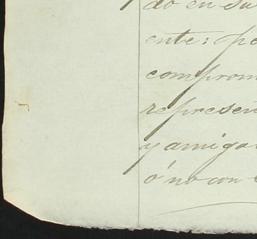 do en su
ente: po
comprom
represen
y amiga
ó no con